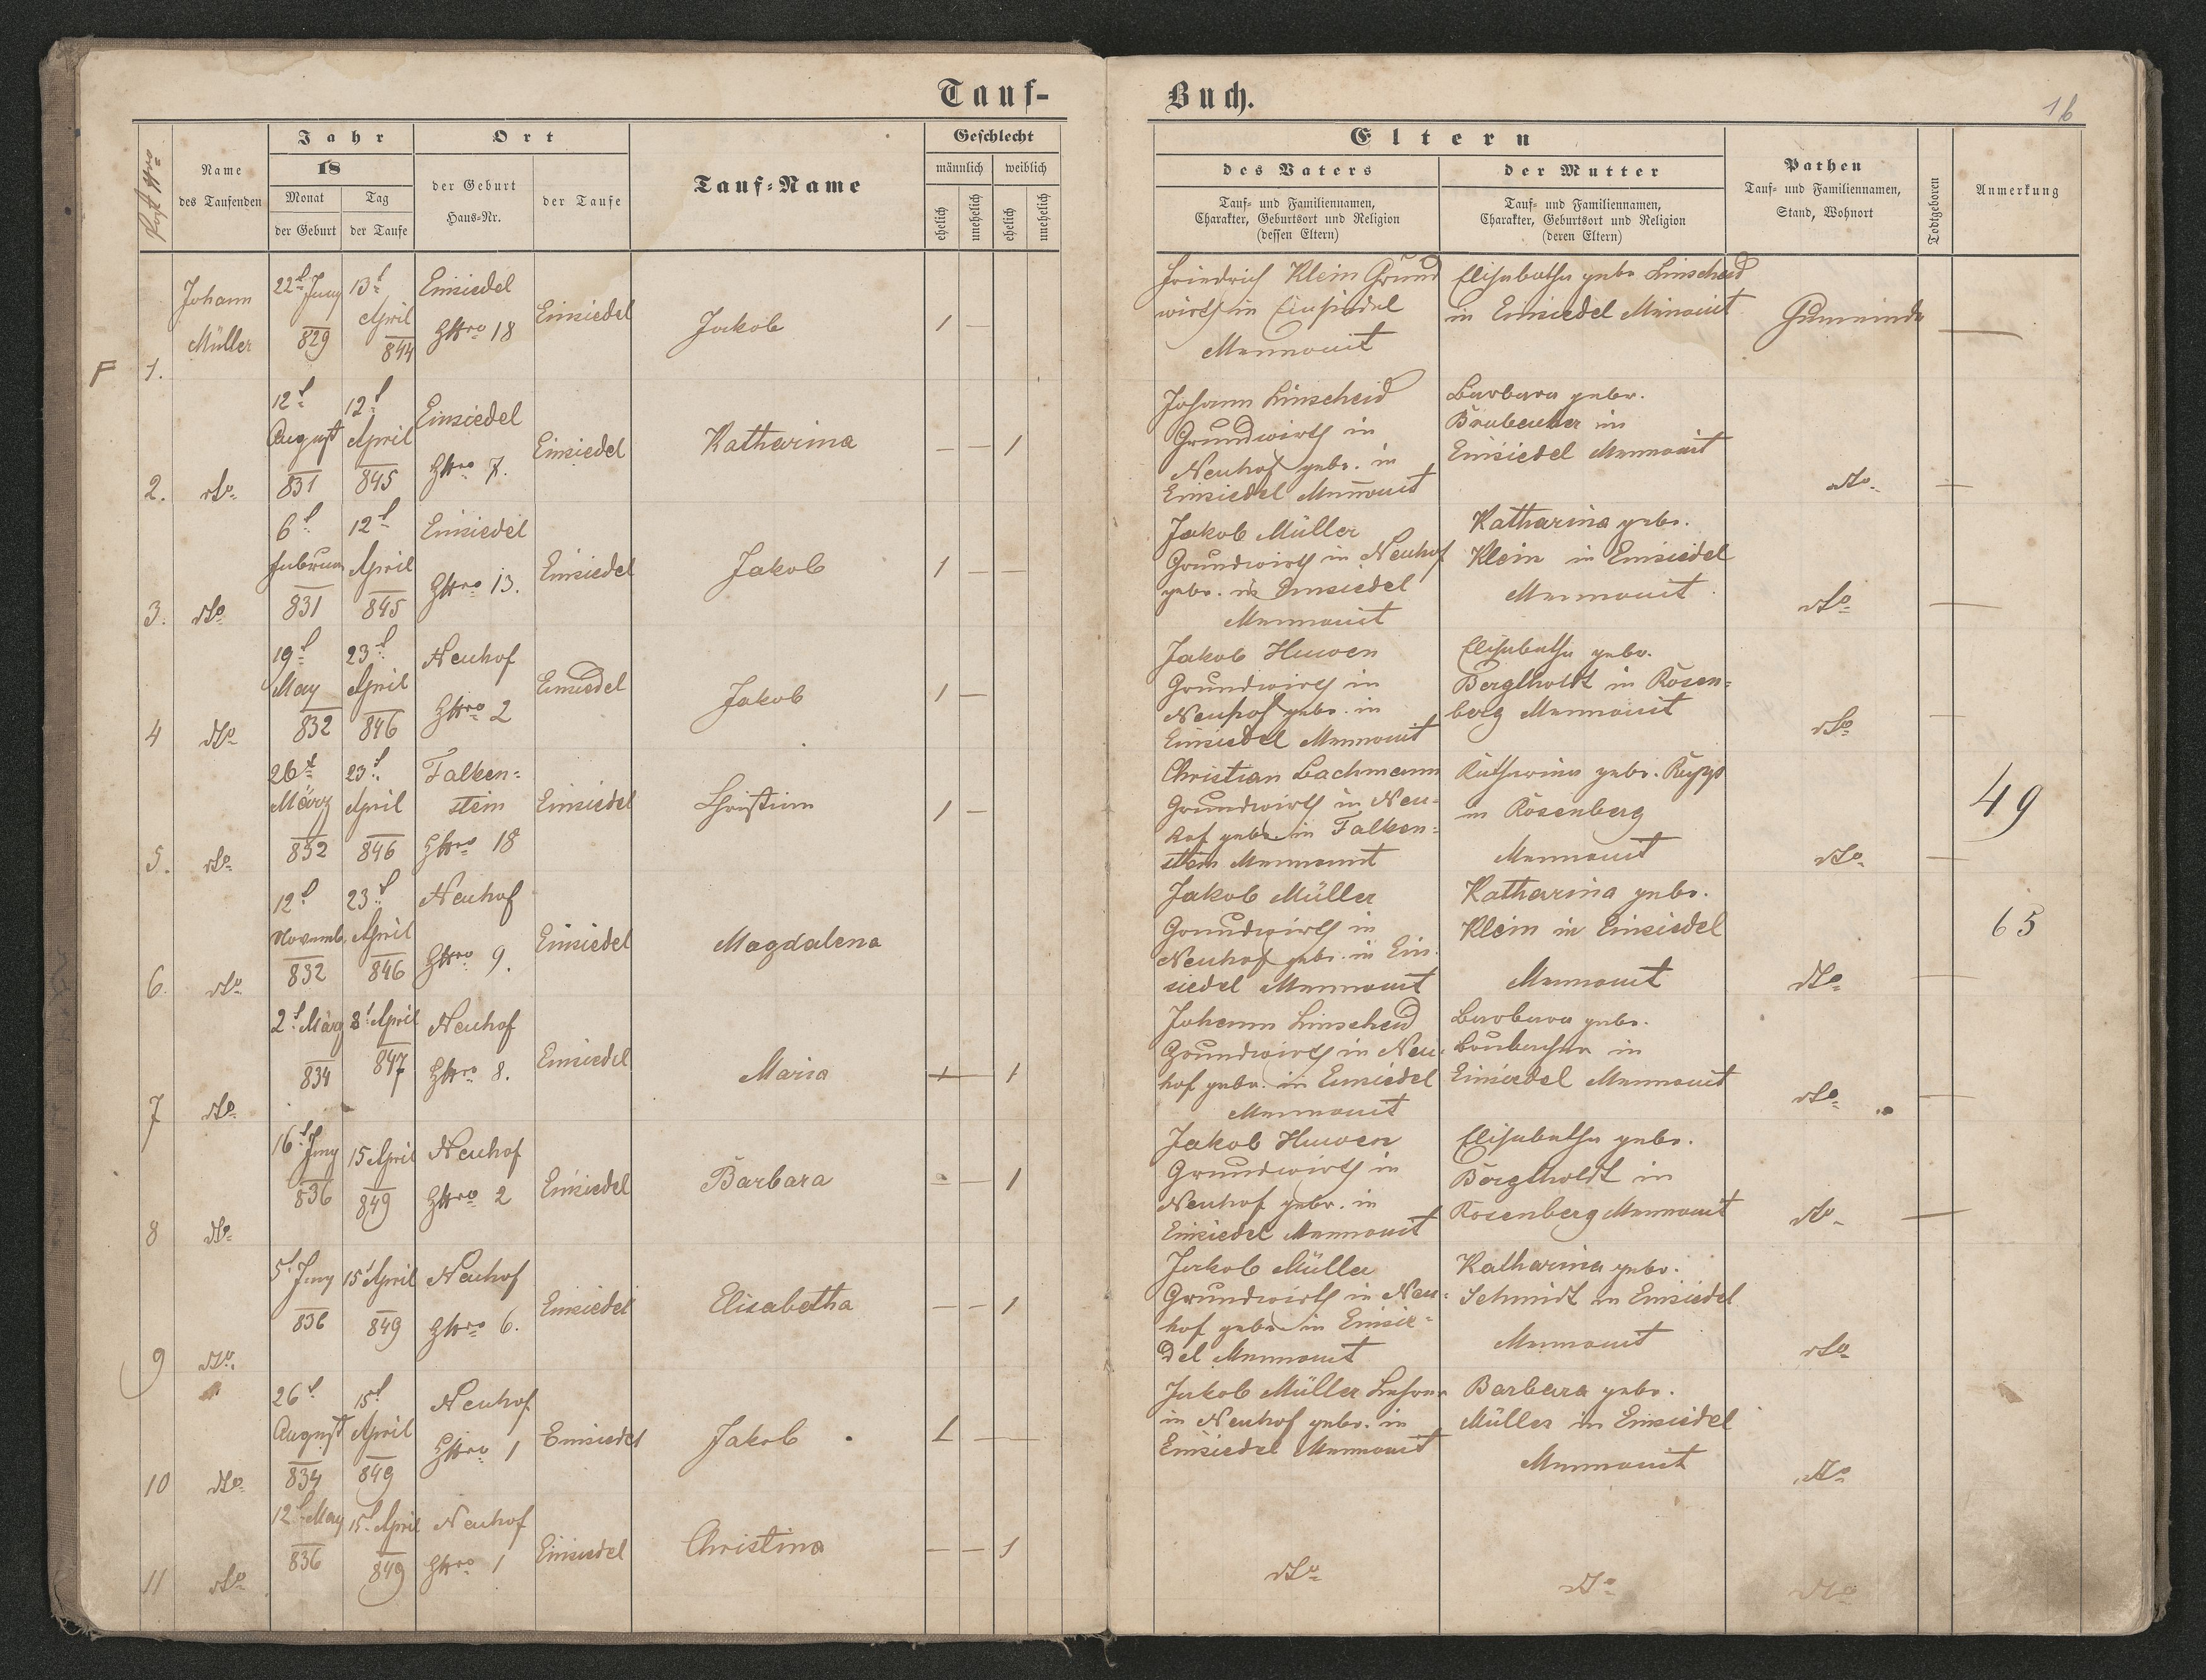 Tauf-
Buch.
16
Post Nro
Name
des Taufenden
Jahr
18
Monat
der Geburt
Tag
der Taufe
Ort
der Geburt
Haus-Nr.
der Taufe
Tauf-Name
Geschlecht
männlich
weiblich
ehelich
unehelich
ehelich
unehelich
Eltern
des Vaters
Tauf- und Familiennamen,
Charakter, Geburtsort und Religion
(dessen Eltern)
der Mutter
Tauf- und Familiennamen,
Charakter, Geburtsort und Religion
(deren Eltern)
Pathen
Tauf- und Familiennamen,
Stand, Wohnort
Todtgeboren
Anmerkung
F
1.
Johann
Müller
22t Juny
829
13t
April
844
Einsiedel
HNro 18
Einsiedel
Jakob
1 —
Friedrich Klein Grund
wirth in Einsiedel
Mennonit
Elisabetha gebr Linscheid
in Einsiedel Menonit
Gemeinde
—
2.
do
12t
August
831
12t
April
845
Einsiedel
HNro 7.
Einsiedel
Katharina
— — 1
Johann Linscheid
Grundwirth in
Neuhof gebr. in
Einsiedel Mennonit
Barbara gebr.
Brubacher in
Einsiedel Mennonit
do
—
3.
do
6t
Februar
831
12t
April
845
Einsiedel
HNro 13.
Einsiedel
Jakob
1 — —
Jakob Müller
Grundwirth in Neuhof
gebr. in Einsiedel
Mennonit
Katharina gebr.
Klein in Einsiedel
Mennonit
do
—
4
do
19t
May
832
23t
April
846
Neuhof
HNro 2
Einsiedel
Jakob
1 —
Jakob Huwen
Grundwirth in
Neuhof gebr. in
Einsiedel Mennonit
Elisabetha gebr.
Berglholdt in Rosen-
berg Mennonit
do
—
5.
do
26t
März
832
23t
April
846
Falken-
stein
HNro 18
Einsiedel
Christian
1 —
Christian Bachmann
Grundwirth in Neu-
hof gebr. in Falken-
stein Mennonit
Katharina gebr. Rupp
in Rosenberg
Mennonit
do
—
49
6.
do
12t
Novemb.
832
23t
April
846
Neuhof
HNro 9.
Einsiedel
Magdalena
Jakob Müller
Grundwirth in
Neuhof gebr. in Ein-
siedel Mennonit
Katharina gebr.
Klein in Einsiedel
Mennonit
do
—
65
7
do
2t März
834
8t April
847
Neuhof
HNro 8.
Einsiedel
Maria
1
Johann Linscheid
Grundwirth in Neu-
hof gebr. in Einsiedel
Mennonit
Barbara gebr.
Brubacher in
Einsiedel Mennonit
do
—
8
do
16t Juny
836
15 April
849
Neuhof
HNro 2
Einsiedel
Barbara
— — 1
Jakob Huwen
Grundwirth in
Neuhof gebr. in
Einsiedel Mennonit
Elisabetha gebr.
Berglholdt in
Rosenberg Mennonit
do
—
9
do
5t Juny
836
15t April
849
Neuhof
HNro 6.
Einsiedel
Elisabetha
— — 1
Jakob Müller
Grundwirth in Neu-
hof gebr. in Einsie-
del Mennonit
Katharina gebr.
Schmidt in Einsiedel
Mennonit
do
10
do
26t
August
834
15t
April
849
Neuhof
HNro 1
Einsiedel
Jakob
1 —
Jakob Müller Lehrer
in Neuhof gebr. in
Einsiedel Mennonit
Barbara gebr.
Müller in Einsiedel
Mennonit
do
11
do
12t May
836
15t April
849
Neuhof
HNro 1
Einsiedel
Christina
— — 1
do
do
do